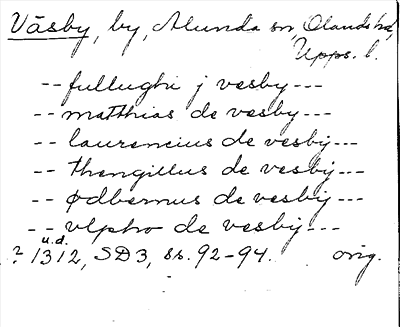 Väsby, by, Alunda sn, Olands hd,
Upps. l.
-- fullughi j vesby ---
-- matthias de vesby ---
-- laurencius de vesby ---
-- thengillus de vesby ---
-- ødbernus de vesby ---
-- vlpho de vesby ---
u.d.
? 1312, SD3, ss. 92-94. orig.